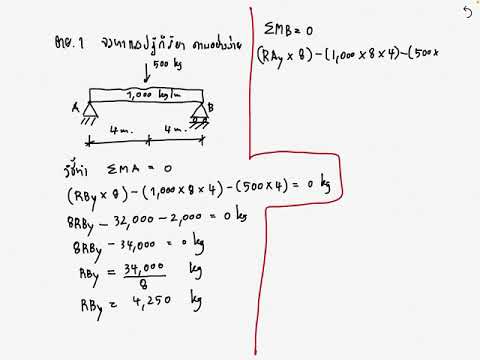 ตย.1 จงหาแรงปฏิกิริยา คานอย่างง่าย
500 kg
1,000 kg/m
A B
4 m. 4 m.
วิธีทำ ΣMA = 0
(RBy × 8) - (1,000 × 8 × 4) - (500 × 4) = 0 kg
8RBy - 32,000 - 2,000 = 0 kg
8RBy - 34,000 = 0 kg
RBy = 34,000/8 kg
RBy = 4,250 kg
ΣMB = 0
(RAy × 8) - (1,000 × 8 × 4) - (500 ×